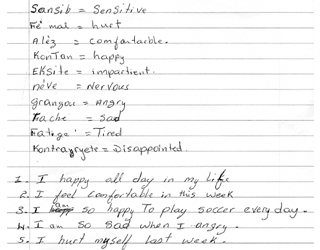 Sansib = Sensitive
Fè mal = hurt
Alèz = comfantaible.
KonTan = happy
EKSite = impartient.
nève = Nervous
grangou = Angry
Fache = Sad
Fatige' = Tired
Kontrayete = Disappointed.
1. I happy all day in my life
2. I feel comfortable in this week
3. I am so happy To play soccer every day.
4. I am so sad when I angry.
5. I hurt myself last week.